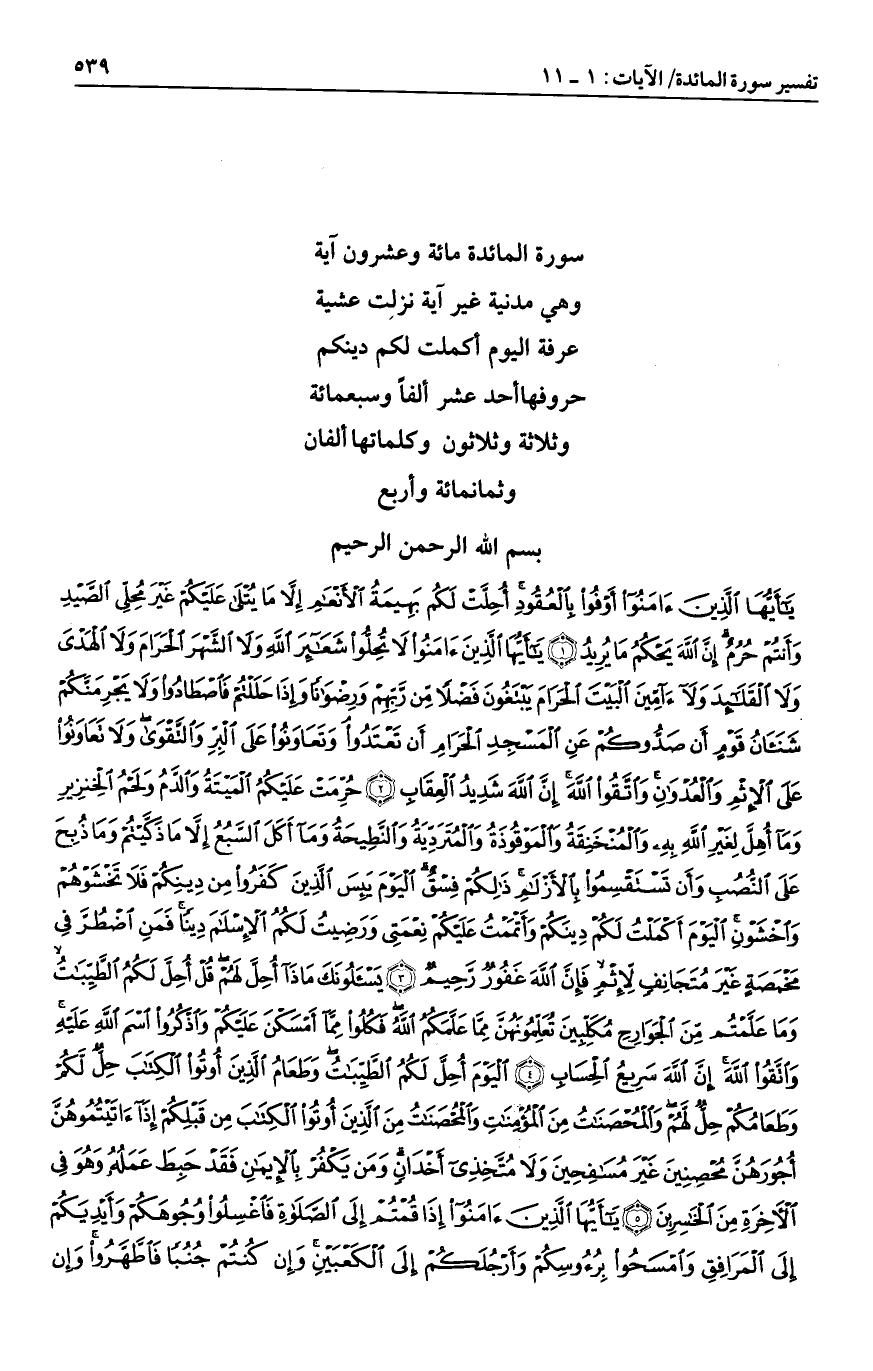 تفسير سورة المائدة/ الآيات: ١ - ١١
٥٣٩
سورة المائدة مائة وعشرون آية
وهي مدنية غير آية نزلت عشية
عرفة اليوم أكملت لكم دينكم
حروفها أحد عشر ألفاً وسبعمائة
وثلاثة وثلاثون وكلماتها ألفان
وثمانمائة وأربع
بسم الله الرحمن الرحيم
يَـٰٓأَيُّهَا ٱلَّذِينَ ءَامَنُوٓا۟ أَوْفُوا۟ بِٱلْعُقُودِ ۚ أُحِلَّتْ لَكُم بَهِيمَةُ ٱلْأَنْعَـٰمِ إِلَّا مَا يُتْلَىٰ عَلَيْكُمْ غَيْرَ مُحِلِّى ٱلصَّيْدِ
وَأَنتُمْ حُرُمٌ ۗ إِنَّ ٱللَّهَ يَحْكُمُ مَا يُرِيدُ ۝١ يَـٰٓأَيُّهَا ٱلَّذِينَ ءَامَنُوا۟ لَا تُحِلُّوا۟ شَعَـٰٓئِرَ ٱللَّهِ وَلَا ٱلشَّهْرَ ٱلْحَرَامَ وَلَا ٱلْهَدْىَ
وَلَا ٱلْقَلَـٰٓئِدَ وَلَآ ءَآمِّينَ ٱلْبَيْتَ ٱلْحَرَامَ يَبْتَغُونَ فَضْلًا مِّن رَّبِّهِمْ وَرِضْوَٰنًا ۚ وَإِذَا حَلَلْتُمْ فَٱصْطَادُوا۟ ۚ وَلَا يَجْرِمَنَّكُمْ
شَنَـَٔانُ قَوْمٍ أَن صَدُّوكُمْ عَنِ ٱلْمَسْجِدِ ٱلْحَرَامِ أَن تَعْتَدُوا۟ ۘ وَتَعَاوَنُوا۟ عَلَى ٱلْبِرِّ وَٱلتَّقْوَىٰ ۖ وَلَا تَعَاوَنُوا۟
عَلَى ٱلْإِثْمِ وَٱلْعُدْوَٰنِ ۚ وَٱتَّقُوا۟ ٱللَّهَ ۖ إِنَّ ٱللَّهَ شَدِيدُ ٱلْعِقَابِ ۝٢ حُرِّمَتْ عَلَيْكُمُ ٱلْمَيْتَةُ وَٱلدَّمُ وَلَحْمُ ٱلْخِنزِيرِ
وَمَآ أُهِلَّ لِغَيْرِ ٱللَّهِ بِهِۦ وَٱلْمُنْخَنِقَةُ وَٱلْمَوْقُوذَةُ وَٱلْمُتَرَدِّيَةُ وَٱلنَّطِيحَةُ وَمَآ أَكَلَ ٱلسَّبُعُ إِلَّا مَا ذَكَّيْتُمْ وَمَا ذُبِحَ
عَلَى ٱلنُّصُبِ وَأَن تَسْتَقْسِمُوا۟ بِٱلْأَزْلَـٰمِ ۚ ذَٰلِكُمْ فِسْقٌ ۗ ٱلْيَوْمَ يَئِسَ ٱلَّذِينَ كَفَرُوا۟ مِن دِينِكُمْ فَلَا تَخْشَوْهُمْ
وَٱخْشَوْنِ ۚ ٱلْيَوْمَ أَكْمَلْتُ لَكُمْ دِينَكُمْ وَأَتْمَمْتُ عَلَيْكُمْ نِعْمَتِى وَرَضِيتُ لَكُمُ ٱلْإِسْلَـٰمَ دِينًا ۚ فَمَنِ ٱضْطُرَّ فِى
مَخْمَصَةٍ غَيْرَ مُتَجَانِفٍ لِّإِثْمٍ ۙ فَإِنَّ ٱللَّهَ غَفُورٌ رَّحِيمٌ ۝٣ يَسْـَٔلُونَكَ مَاذَآ أُحِلَّ لَهُمْ ۖ قُلْ أُحِلَّ لَكُمُ ٱلطَّيِّبَـٰتُ ۙ
وَمَا عَلَّمْتُم مِّنَ ٱلْجَوَارِحِ مُكَلِّبِينَ تُعَلِّمُونَهُنَّ مِمَّا عَلَّمَكُمُ ٱللَّهُ ۖ فَكُلُوا۟ مِمَّآ أَمْسَكْنَ عَلَيْكُمْ وَٱذْكُرُوا۟ ٱسْمَ ٱللَّهِ عَلَيْهِ ۖ
وَٱتَّقُوا۟ ٱللَّهَ ۚ إِنَّ ٱللَّهَ سَرِيعُ ٱلْحِسَابِ ۝٤ ٱلْيَوْمَ أُحِلَّ لَكُمُ ٱلطَّيِّبَـٰتُ ۖ وَطَعَامُ ٱلَّذِينَ أُوتُوا۟ ٱلْكِتَـٰبَ حِلٌّ لَّكُمْ
وَطَعَامُكُمْ حِلٌّ لَّهُمْ ۖ وَٱلْمُحْصَنَـٰتُ مِنَ ٱلْمُؤْمِنَـٰتِ وَٱلْمُحْصَنَـٰتُ مِنَ ٱلَّذِينَ أُوتُوا۟ ٱلْكِتَـٰبَ مِن قَبْلِكُمْ إِذَآ ءَاتَيْتُمُوهُنَّ
أُجُورَهُنَّ مُحْصِنِينَ غَيْرَ مُسَـٰفِحِينَ وَلَا مُتَّخِذِىٓ أَخْدَانٍ ۗ وَمَن يَكْفُرْ بِٱلْإِيمَـٰنِ فَقَدْ حَبِطَ عَمَلُهُۥ وَهُوَ فِى
ٱلْـَٔاخِرَةِ مِنَ ٱلْخَـٰسِرِينَ ۝٥ يَـٰٓأَيُّهَا ٱلَّذِينَ ءَامَنُوٓا۟ إِذَا قُمْتُمْ إِلَى ٱلصَّلَوٰةِ فَٱغْسِلُوا۟ وُجُوهَكُمْ وَأَيْدِيَكُمْ
إِلَى ٱلْمَرَافِقِ وَٱمْسَحُوا۟ بِرُءُوسِكُمْ وَأَرْجُلَكُمْ إِلَى ٱلْكَعْبَيْنِ ۚ وَإِن كُنتُمْ جُنُبًا فَٱطَّهَّرُوا۟ ۚ وَإِن